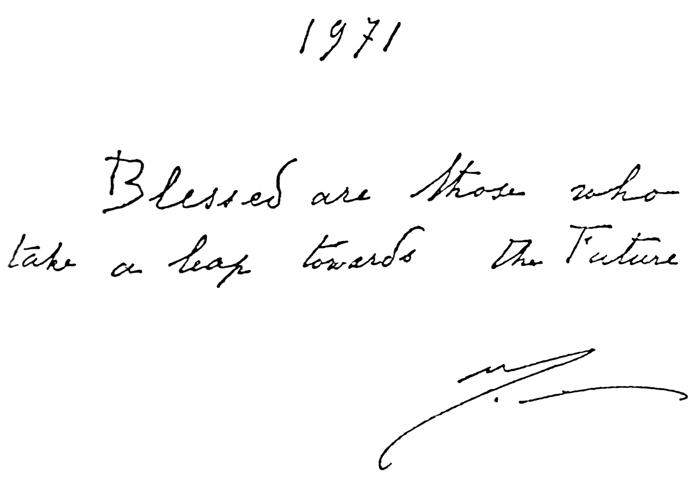 1971
Blessed are those who
take a leap towards the Future